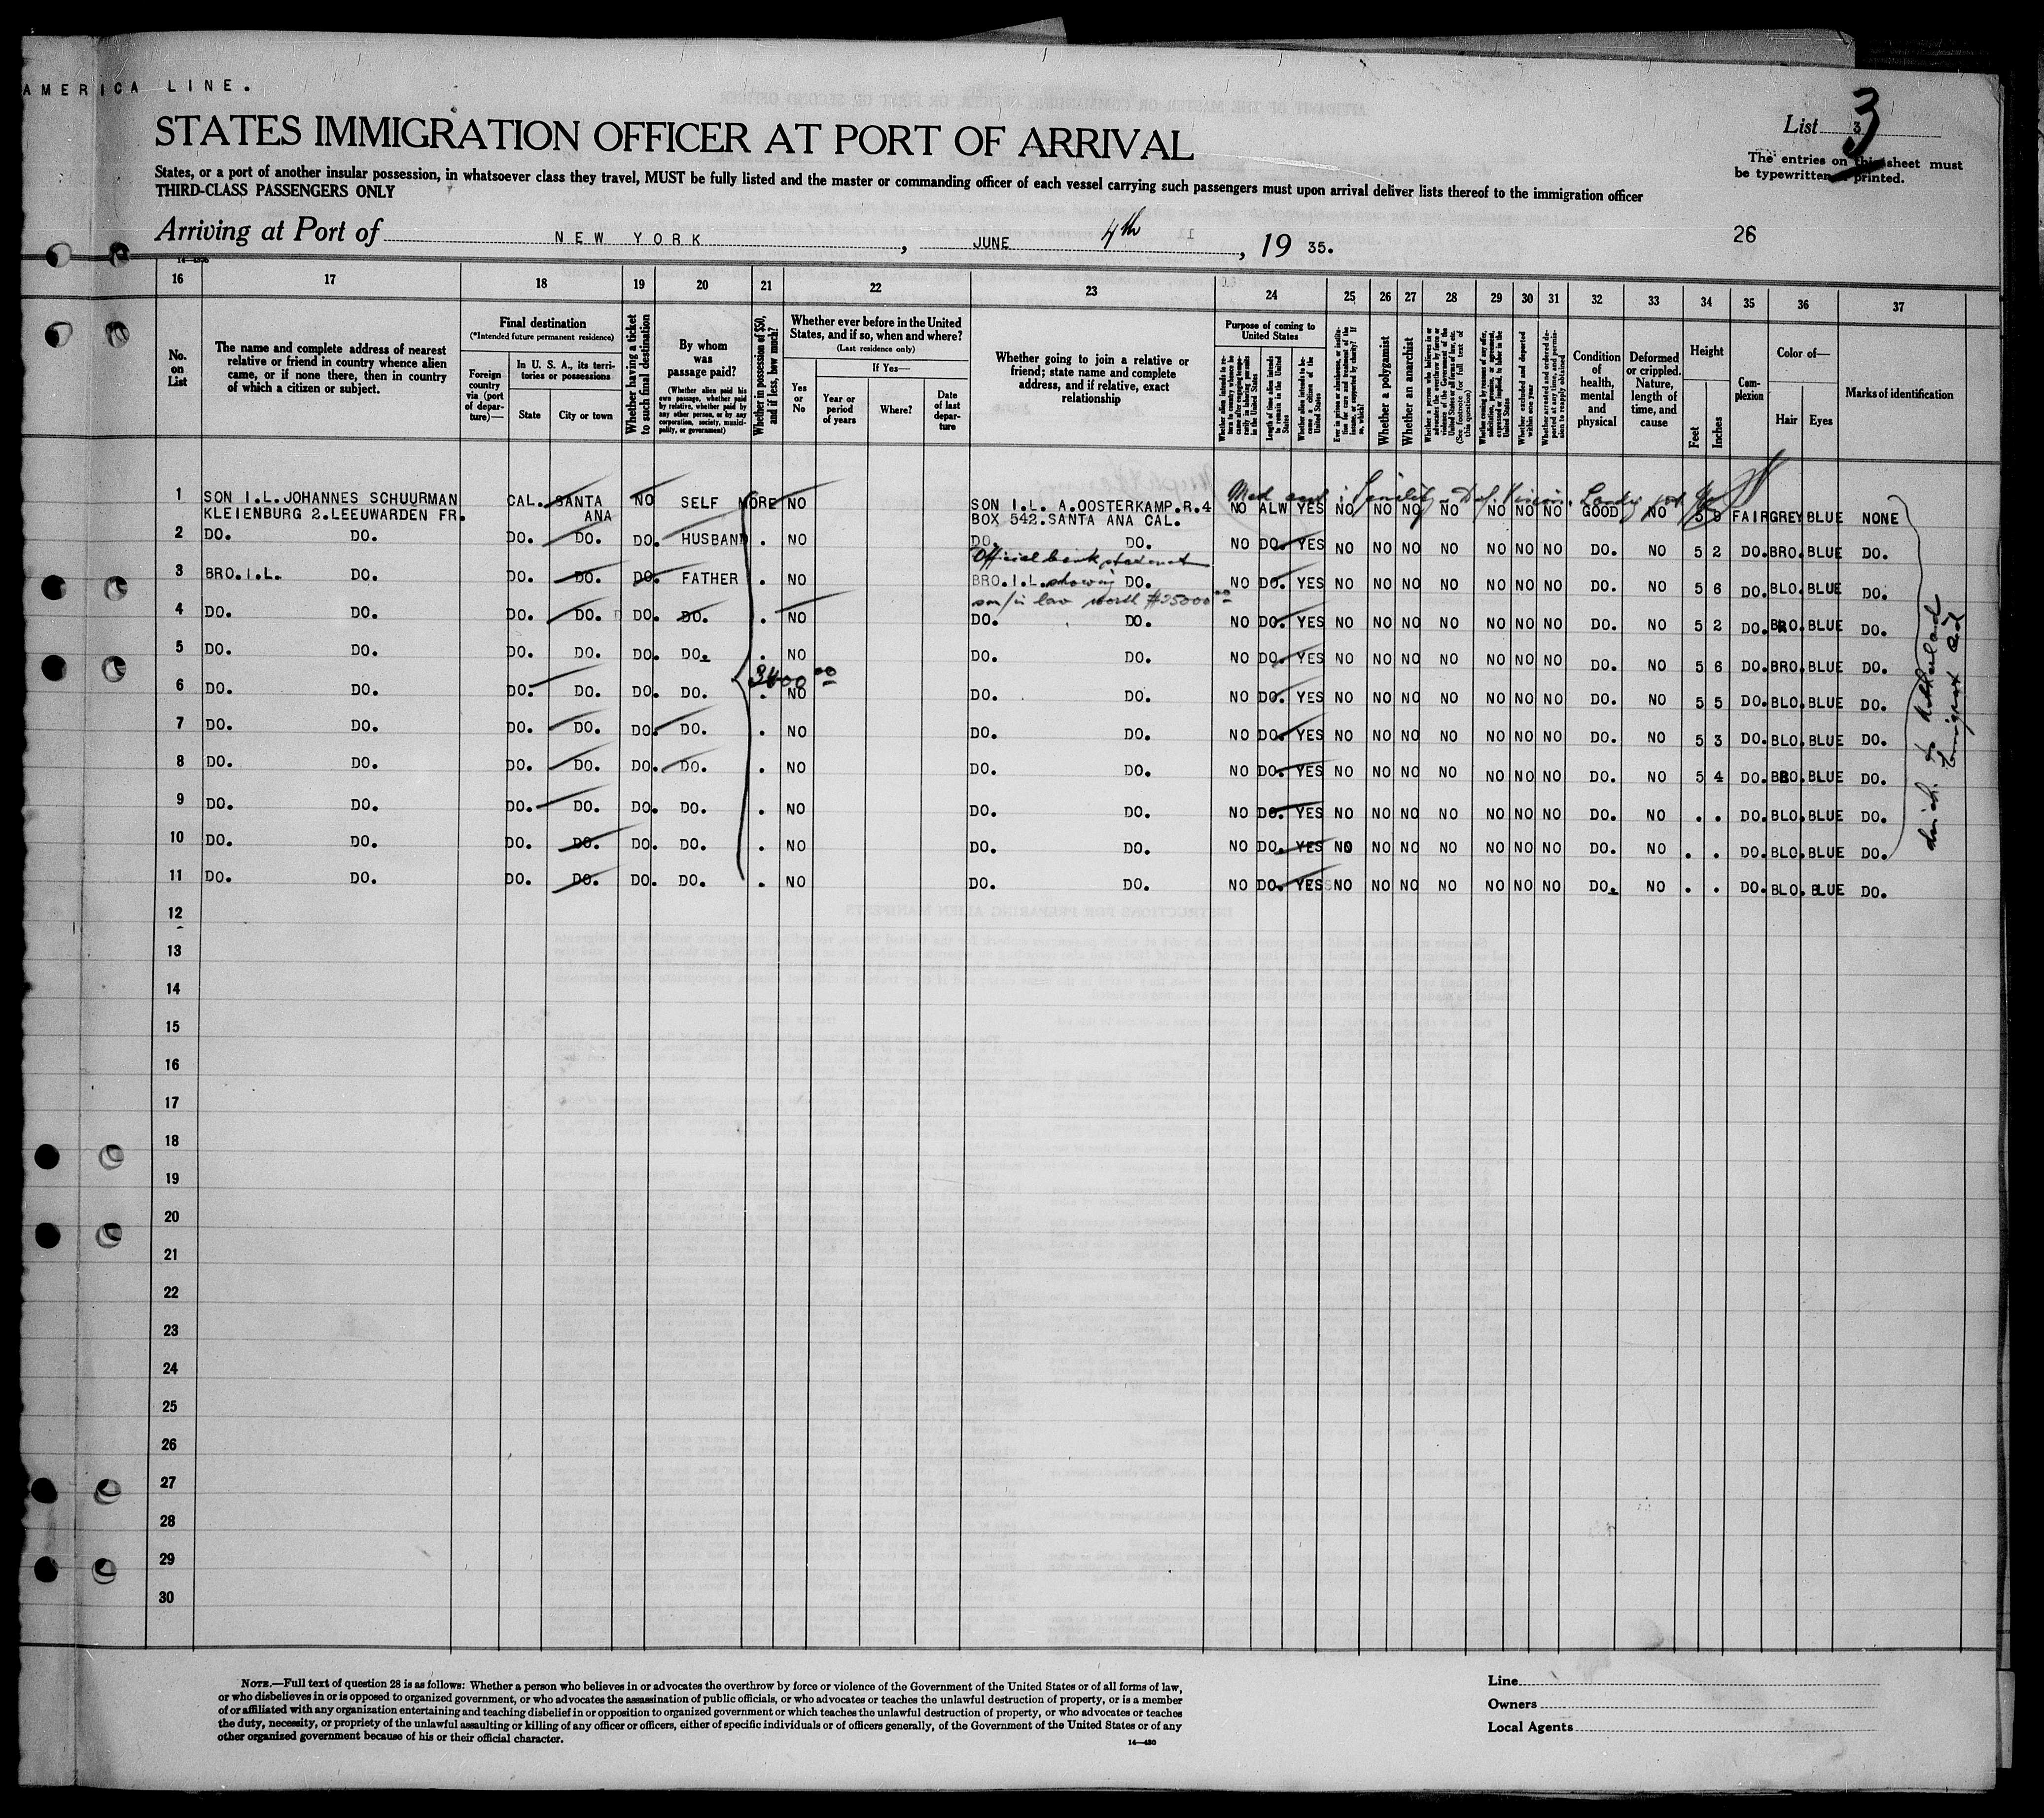 AMERICA LINE.
STATES IMMIGRATION OFFICER AT PORT OF ARRIVAL
List 3
3
The entries on this sheet must
be typewritten or printed.
States, or a port of another insular possession, in whatsoever class they travel, MUST be fully listed and the master or commanding officer of each vessel carrying such passengers must upon arrival deliver lists thereof to the immigration officer
THIRD-CLASS PASSENGERS ONLY
Arriving at Port of NEW YORK, JUNE 4th 11, 19 35.
26
16 17 18 19 20 21 22 23 24 25 26 27 28 29 30 31 32 33 34 35 36 37
No. on List
The name and complete address of nearest relative or friend in country whence alien came, or if none there, then in country of which a citizen or subject.
Final destination
(*Intended future permanent residence)
Foreign country via (port of departure)—
In U. S. A., its territories or possessions
State
City or town
Whether having a ticket to such final destination
By whom was passage paid?
(Whether alien paid his own passage, whether paid by relative, whether paid by any other person, or by any corporation, society, municipality, or government)
Whether in possession of $50, and if less, how much?
Whether ever before in the United States, and if so, when and where?
(Last residence only)
Yes or No
If Yes—
Year or period of years
Where?
Date of last departure
Whether going to join a relative or friend; state name and complete address, and if relative, exact relationship
Purpose of coming to United States
Length of time alien intends to remain in the United States
Whether alien intends to become a citizen of the United States
Whether a polygamist
Whether an anarchist
Whether excluded and deported within one year
Condition of health, mental and physical
Deformed or crippled. Nature, length of time, and cause
Height
Feet
Inches
Complexion
Color of—
Hair
Eyes
Marks of identification
1 SON I.L.JOHANNES SCHUURMAN CAL. SANTA NO SELF MORE NO SON I.L. A.OOSTERKAMP.R.4 NO ALW YES NO NO NO NO NO NO NO GOOD NO 5 9 FAIR GREY BLUE NONE
KLEIENBURG 2.LEEUWARDEN FR. ANA BOX 542.SANTA ANA CAL.
2 DO. DO. DO. DO. DO. HUSBAND . NO DO. DO. NO DO. YES NO NO NO NO NO NO NO DO. NO 5 2 DO. BRO. BLUE DO.
Official bank statement
3 BRO.I.L. DO. DO. DO. DO. FATHER . NO BRO.I.L. showing DO. NO DO. YES NO NO NO NO NO NO NO DO. NO 5 6 DO. BLO. BLUE DO.
son/in law worth $25000 00
4 DO. DO. DO. DO. DO. DO. . NO DO. DO. NO DO. YES NO NO NO NO NO NO NO DO. NO 5 2 DO. BRO. BLUE DO.
5 DO. DO. DO. DO. DO. DO. . NO DO. DO. NO DO. YES NO NO NO NO NO NO NO DO. NO 5 6 DO. BRO. BLUE DO.
3400 00
6 DO. DO. DO. DO. DO. DO. . NO DO. DO. NO DO. YES NO NO NO NO NO NO NO DO. NO 5 5 DO. BLO. BLUE DO.
7 DO. DO. DO. DO. DO. DO. . NO DO. DO. NO DO. YES NO NO NO NO NO NO NO DO. NO 5 3 DO. BLO. BLUE DO.
8 DO. DO. DO. DO. DO. DO. . NO DO. DO. NO DO. YES NO NO NO NO NO NO NO DO. NO 5 4 DO. BRO. BLUE DO.
9 DO. DO. DO. DO. DO. DO. . NO DO. DO. NO DO. YES NO NO NO NO NO NO NO DO. NO . . DO. BLO. BLUE DO.
10 DO. DO. DO. DO. DO. DO. . NO DO. DO. NO DO. YES NO NO NO NO NO NO NO DO. NO . . DO. BLO. BLUE DO.
11 DO. DO. DO. DO. DO. DO. . NO DO. DO. NO DO. YES NO NO NO NO NO NO NO DO. NO . . DO. BLO. BLUE DO.
12
13
14
15
16
17
18
19
20
21
22
23
24
25
26
27
28
29
30
NOTE.—Full text of question 28 is as follows: Whether a person who believes in or advocates the overthrow by force or violence of the Government of the United States or of all forms of law,
or who disbelieves in or is opposed to organized government, or who advocates the assassination of public officials, or who advocates or teaches the unlawful destruction of property, or is a member
of or affiliated with any organization entertaining and teaching disbelief in or opposition to organized government or which teaches the unlawful destruction of property, or who advocates or teaches
the duty, necessity, or propriety of the unlawful assaulting or killing of any officer or officers, either of specific individuals or of officers generally, of the Government of the United States or of any
other organized government because of his or their official character.
14—430
Line
Owners
Local Agents